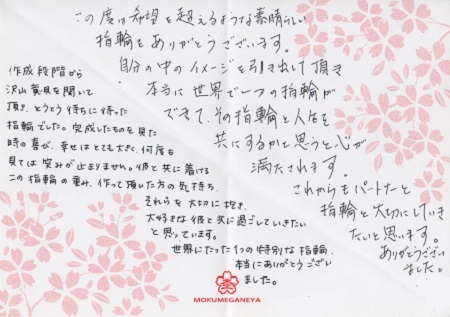 この度は希望を超えるような素晴らしい
指輪をありがとうございます。
自分の中のイメージを引き出して頂き
本当に世界で一つの指輪が
できて、その指輪と人生を
共にするかと思うと心が
満たされます。
これからもパートナーと
指輪を大切にしていき
たいと思います。
ありがとうござい
ました。
作成段階から
沢山意見を聞いて
頂き、とうとう待ちに待った
指輪でした。完成したものを見た
時の喜び、幸せはとても大きく、何度も
見ては笑みが止まりません。彼と共に着ける
この指輪の重み、作って頂いた方の気持ち、
それらを大切に抱き、
大好きな彼と共に過ごしていきたい
と思っています。
世界にたった1つの特別な指輪、
本当にありがとうござい
ました。
MOKUMEGANEYA